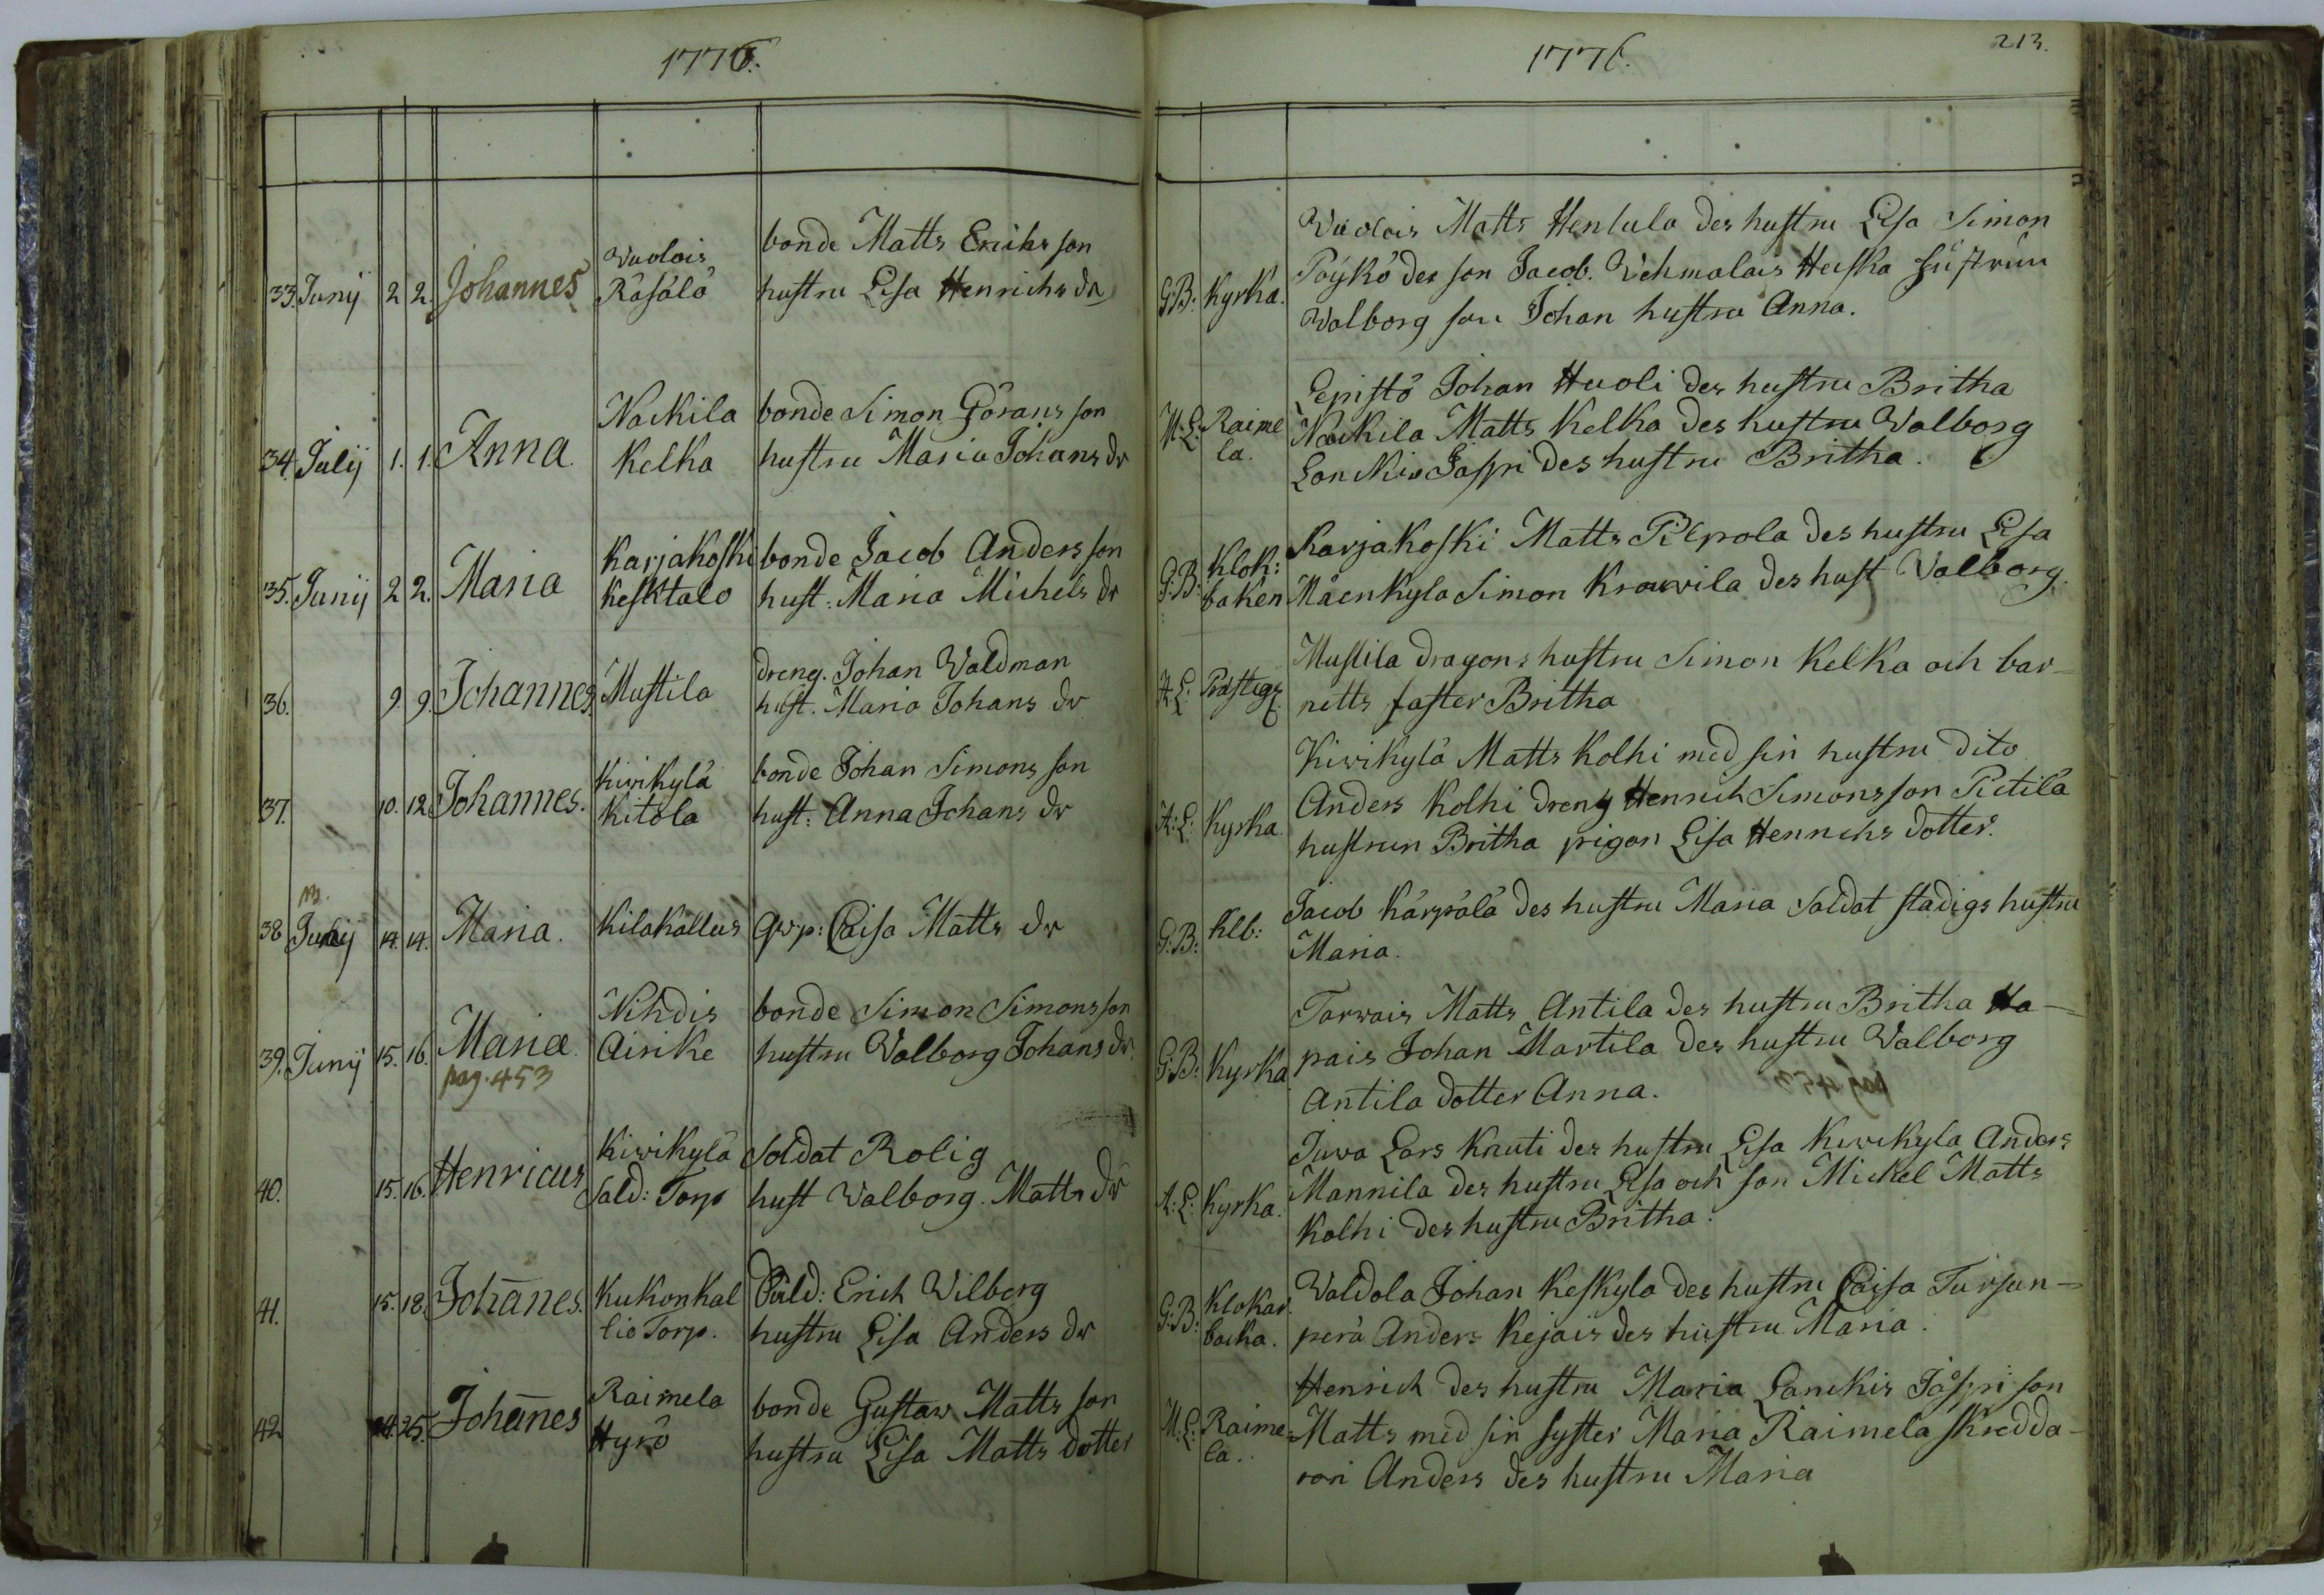 1776.
1776.
213.
33. Junij 2 2. Johannes
Wuolois
Räsälö
bonde Matts Erichs son
hustru Lisa Henrichs dr
G:B: Kyrka.
Wuolois Matts Hentula des hustru Lisa Simon
Pöykö des son Jacob. Wehmalais Heiska hustrun
Walborg son Johan hustru Anna.
34. Julij 1. 1. Anna.
Nackila
Kelka
bonde Simon Görans son
hustru Maria Johans dr
M:L: Raime
la.
Lepistö Johan Huoli des hustru Britha
Nackila Matts Kelka des hustru Walborg
Lanckis Jaspri des hustru Britha.
35. Junij 2 2. Maria
Karjakoski
Kesktalo
bonde Jacob Anders son
hust: Maria Michels dr
G:B: Klok:
baken
Karjakoski Matts Pilpola des hustru Lisa
Mäenkyla Simon Krouvila des hust Walborg.
36. 9. 9. Johannes.
Mustila
dreng. Johan Waldman
hust. Maria Johans dr
A:L: Prästeg.
Mustila dragons hustru Simon Kelka och bar-
netts faster Britha
37. 10. 12. Johannes.
Kiwikylä
Kitola
bonde Johan Simons son
hust: Anna Johans dr
A:L: Kyrka.
Kiwikylä Matts Kolhi med sin hustru dito
Anders Kolhi dreng Henrich Simons son Pietilä
hustrun Britha pigan Lisa Henrichs dotter.
38 Junij 14. 14. Maria.
Kilakallus
Qwp: Caisa Matts dr
G:B: Klb:
Jacob Kärpälä des hustru Maria Soldat stadigs hustru
Maria.
39. Junij 15. 16. Maria.
pag. 453
Nihdis
Airike
bonde Simon Simons son
hustru Walborg Johans dr.
G:B: Kyrka
Torwais Matts Antila des hustru Britha Ha-
pais Johan Martila des hustru Walborg
Antila dotter Anna.
40. 15. 16. Henricus
Kiwikylä
Sold: Torp
Soldat Rolig
hust Walborg Matts dr
A:L: Kyrka.
Juva Lars Knuti des hustru Lisa Kiwikyla Anders
Mannila des hustru Lisa och son Mickel Matts
Kolhi des hustru Britha.
41. 15. 18. Johanes.
Kukonkal
lio Torp.
Sold: Erich Wilberg
hustru Lisa Anders dr
G:B: Klokar
backa.
Waldola Johan Keskyla des hustru Caisa Tursun-
perä Anders Kejais des hustru Maria.
42 24. 25. Johanes
Raimela
Hyrö
bonde Gustaw Matts son
hustru Lisa Matts dotter
M:L: Raime
la.
Henrich des hustru Maria Lanckis Jåspri son
Matts med sin syster Maria Raimela skredda-
ren Anders des hustru Maria